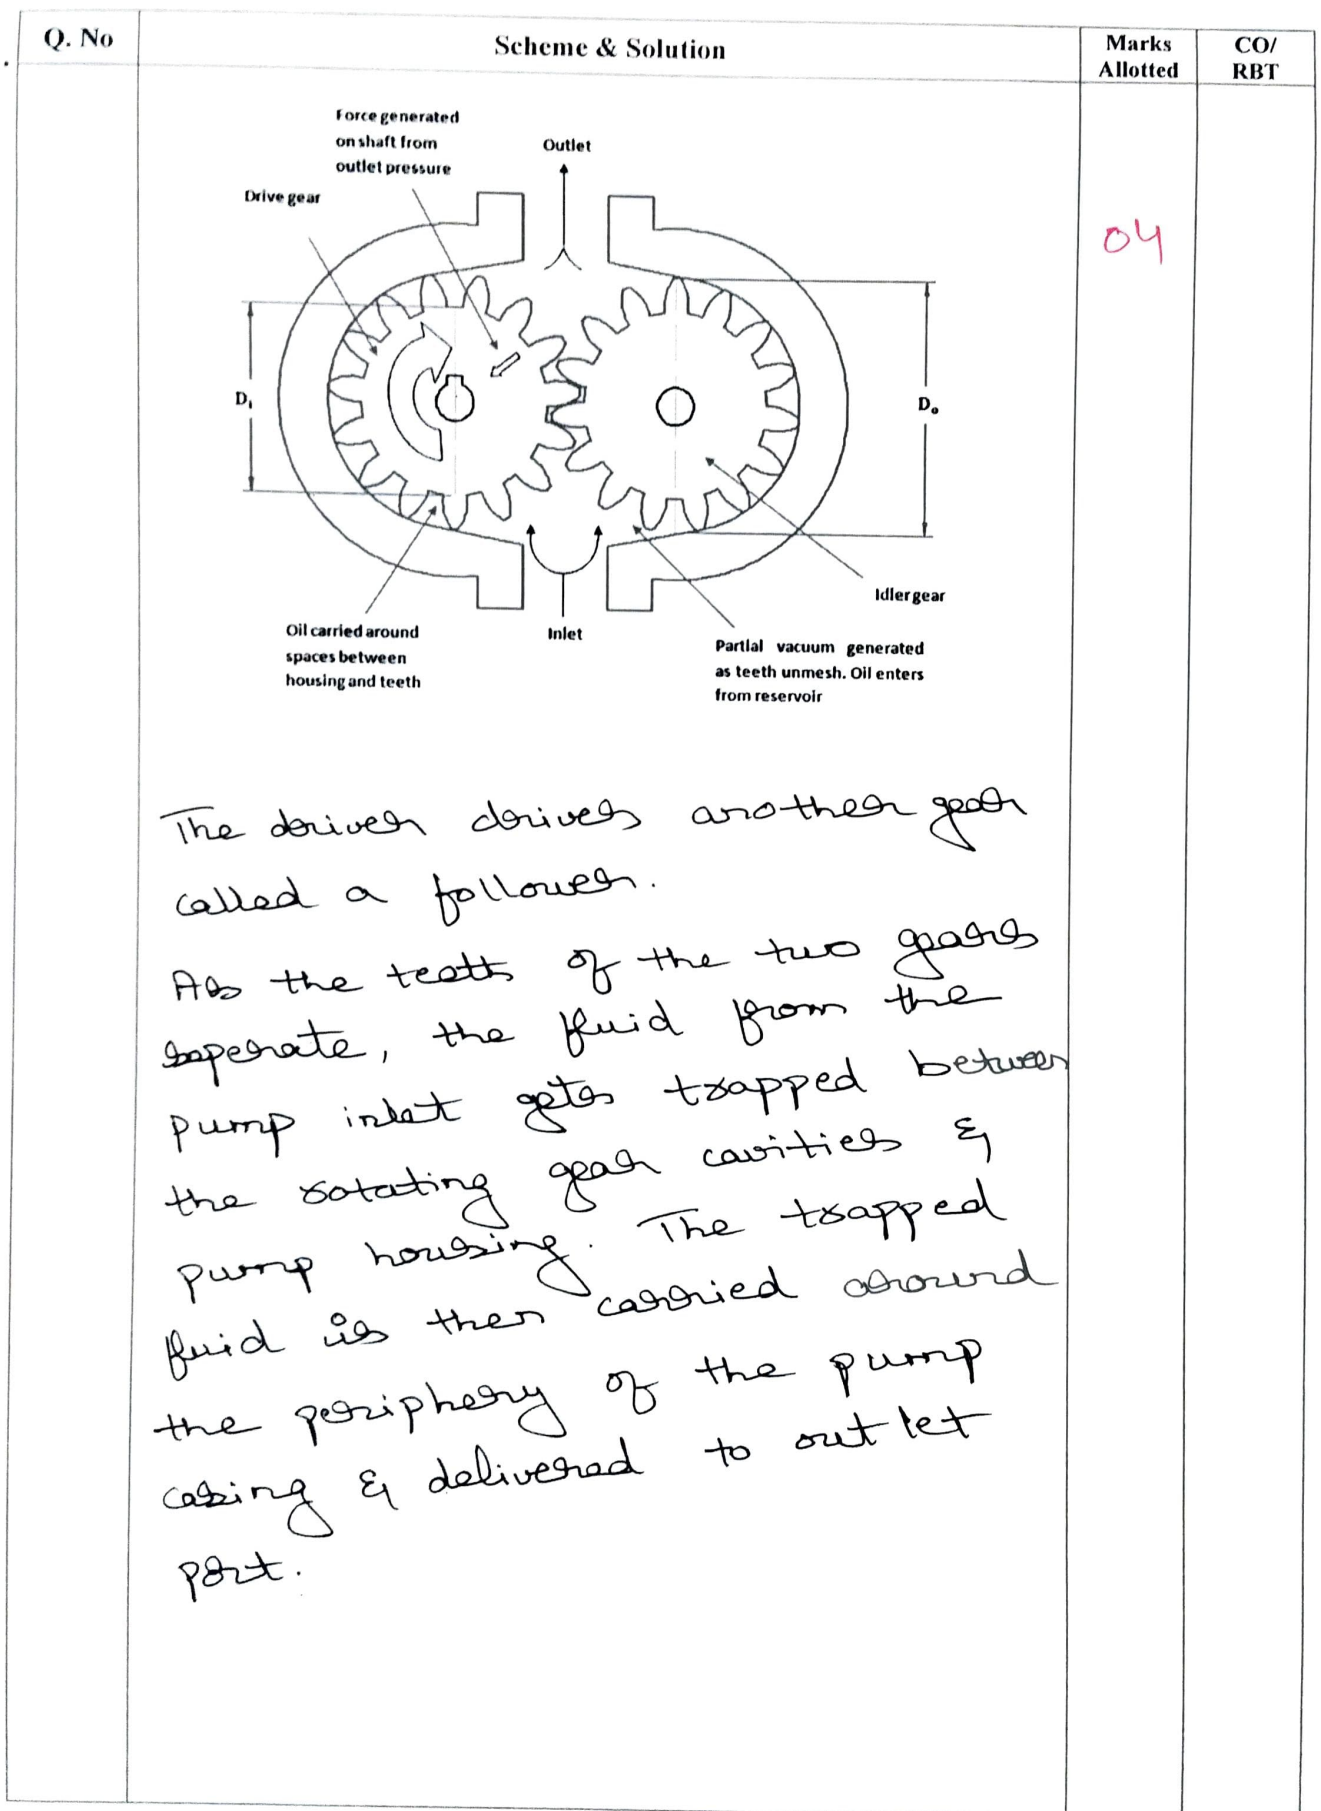 Q. No
Scheme & Solution
Marks
Allotted
CO/
RBT
Force generated
on shaft from
outlet pressure
Outlet
Drive gear
04
Di
Do
Idler gear
Oil carried around
spaces between
housing and teeth
Inlet
Partial vacuum generated
as teeth unmesh. Oil enters
from reservoir
The driver drives another gear
called a follower.
As the teeth of the two gears
seperate, the fluid from the
pump inlet gets trapped between
the rotating gear cavities &
pump housing. The trapped
fluid is then carried around
the periphery of the pump
casing & delivered to outlet
port.